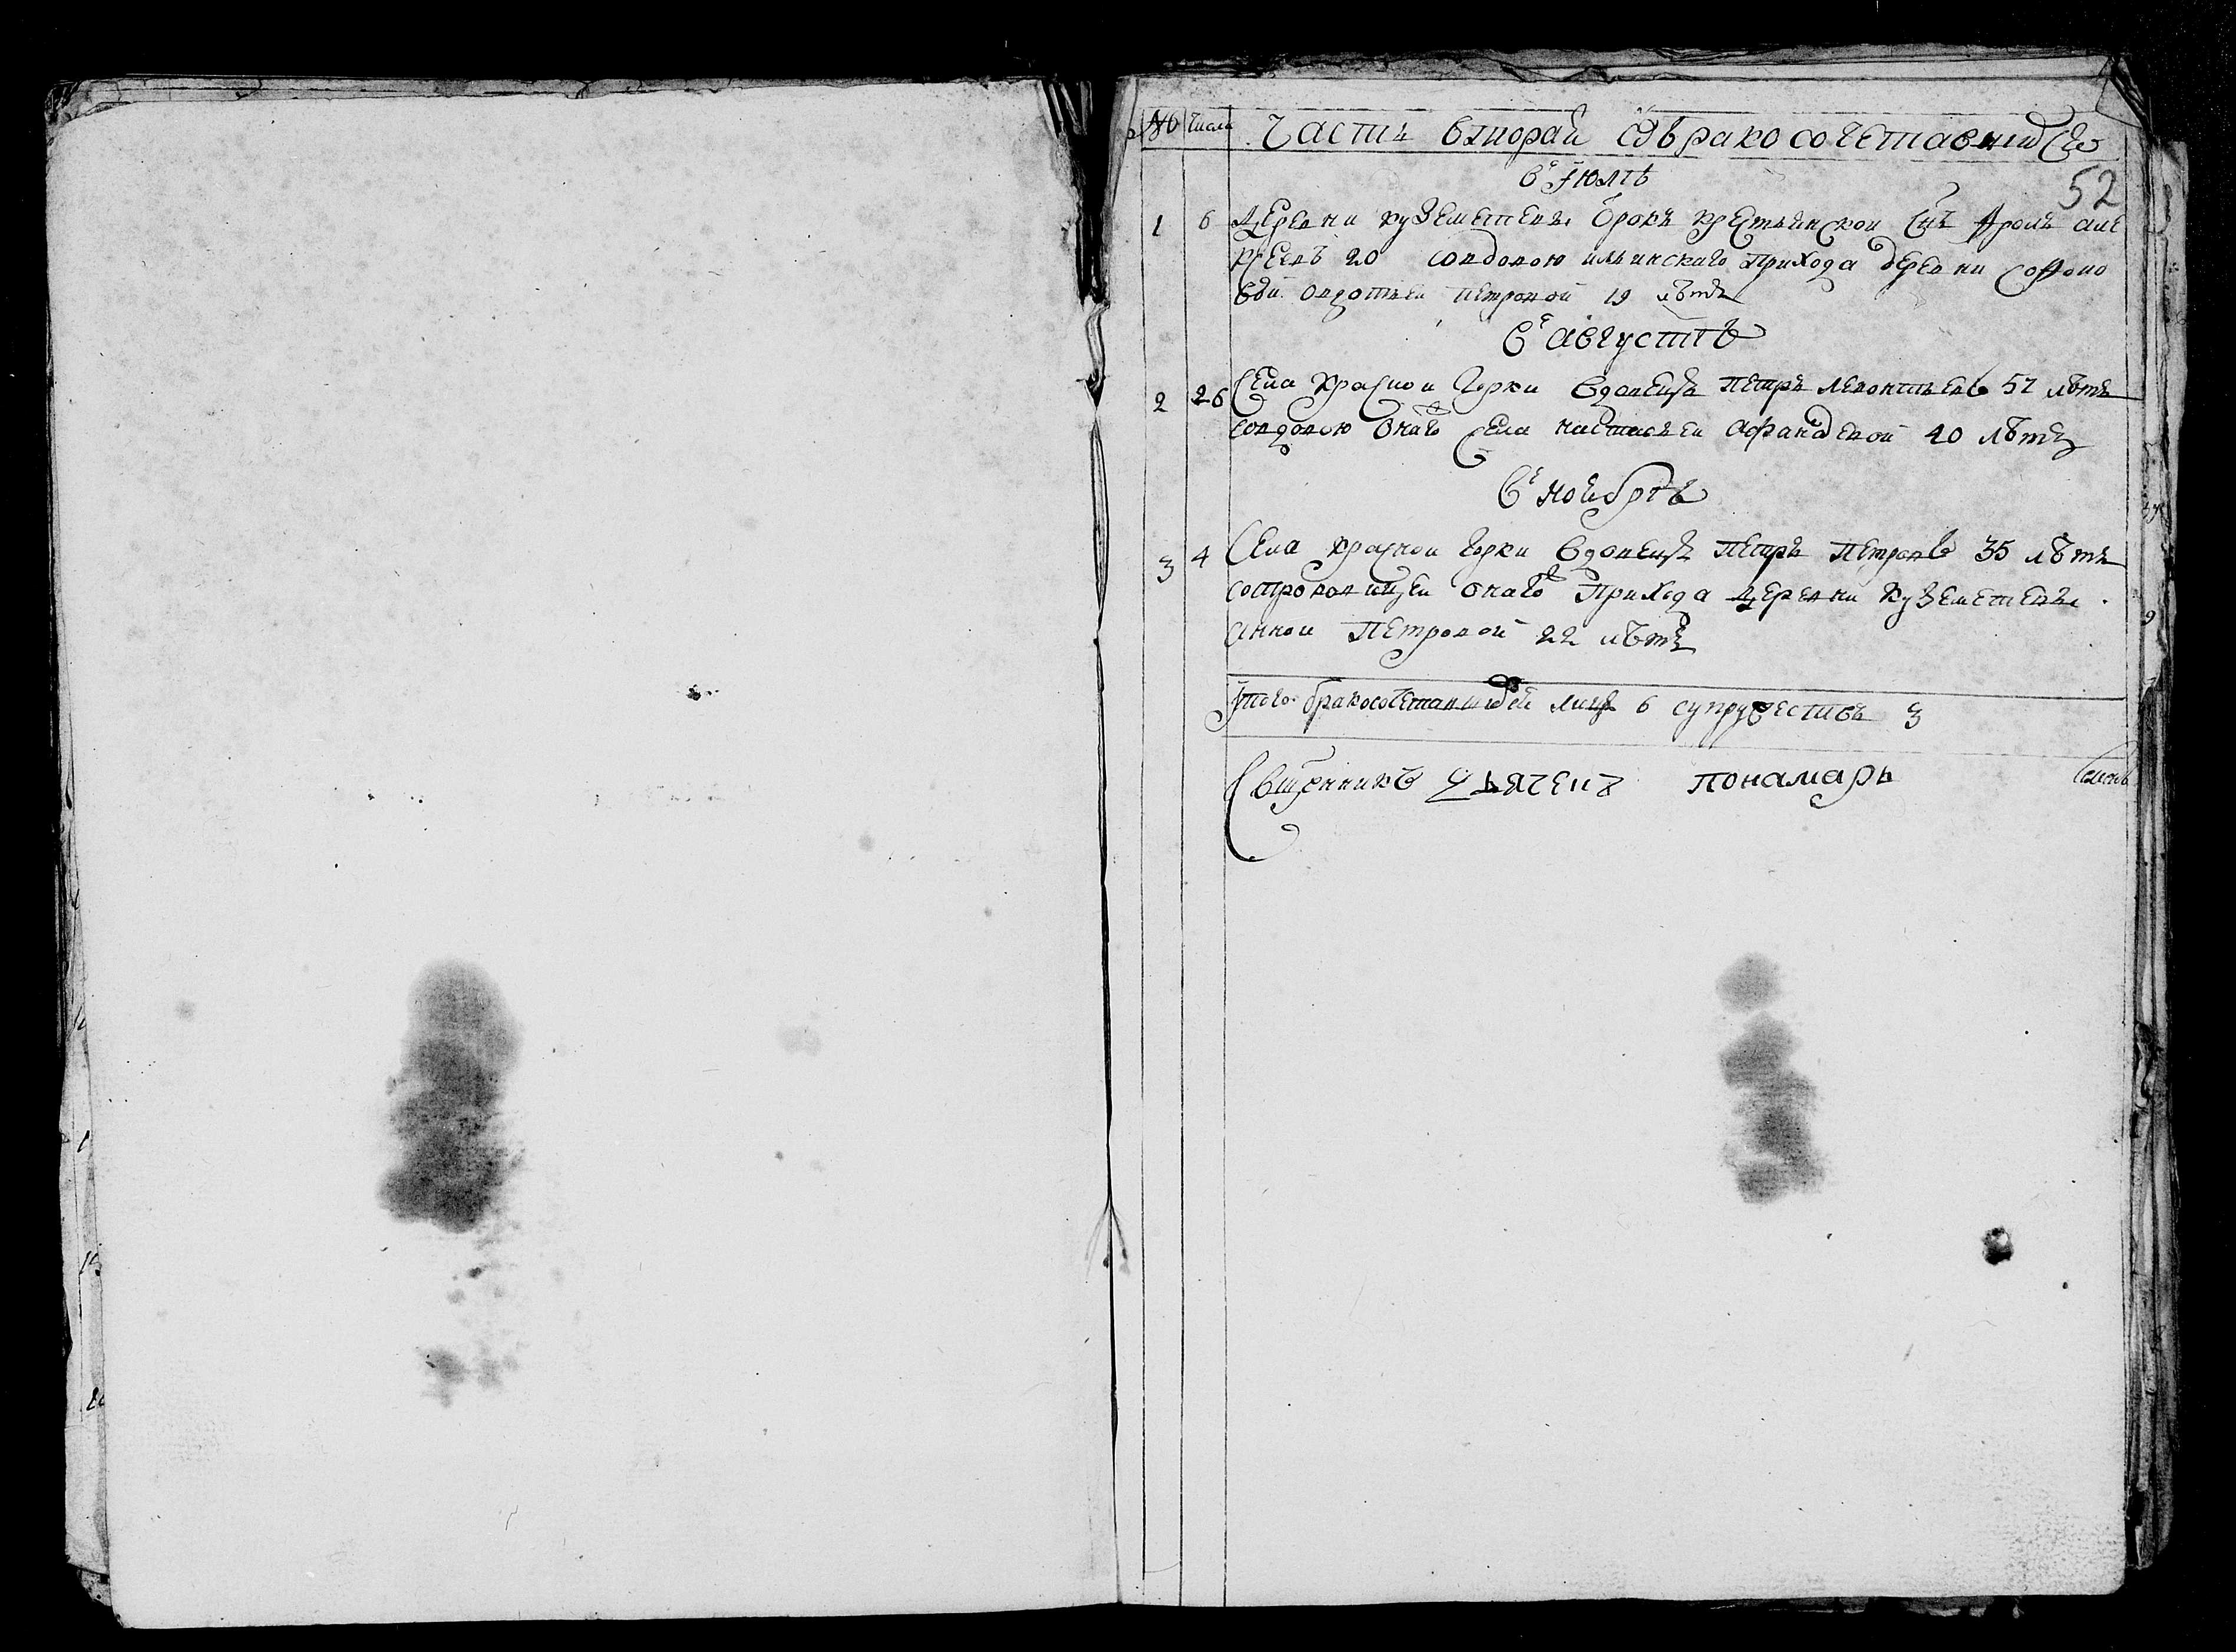 № Числа Часть вторая о бракосочетавшихся
52
в Июле
1 6 деревни Куземетева отрокъ крестьянской снъ Фролъ Але
ксеевъ 20 совдовою ильинскаго прихода деревни Софоно
вой овдотьеи петровой 19 лѣтъ
в августѣ
2 26 Села Красной Горки вдовецъ петръ леонтьевъ 57 лѣтъ
совдовою онаго села настасьеи афанасевой 40 лѣтъ
в ноябрѣ
3 4 Села красной горки вдовецъ петръ петровъ 35 лѣтъ
сотроковицеи онаго прихода деревни Куземетева
анной петровой 22 лѣтъ
Итого бракосочетавшихся лицъ 6 супружествъ 3
Свщенникъ пономарь